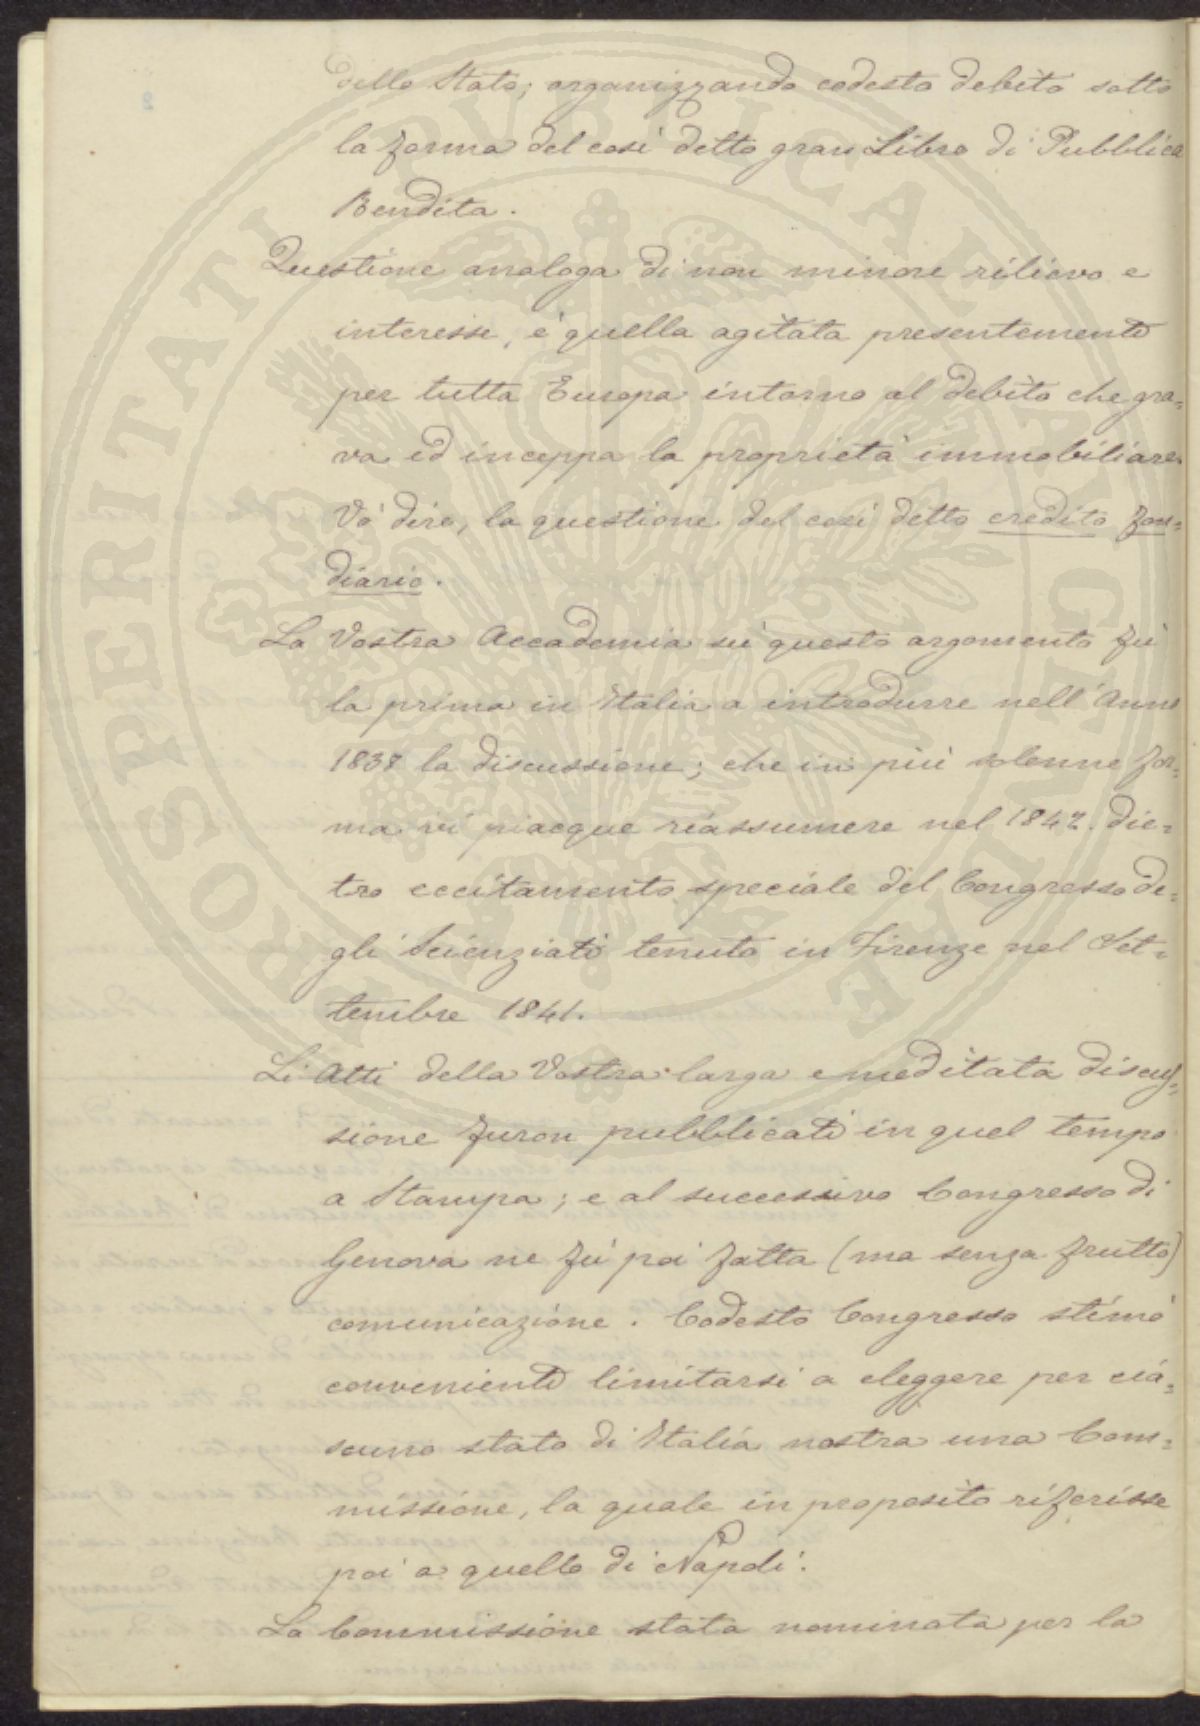 dello Stato; organizzando codesto debito sotto
la forma del così detto gran Libro di Pubblica
Rendita.
Questione analoga di non minore rilievo e
interesse, è quella agitata presentemente
per tutta Europa intorno al debito che gra=
va ed inceppa la proprietà immobiliare.
Vò dire, la questione del così detto credito fon=
diario.
La Vostra Accademia sù questo argomento fù
la prima in Italia a introdurre nell'Anno
1838 la discussione; che in più solenne for=
ma vi piacque riassumere nel 1842. die=
tro eccitamento speciale del Congresso de=
gli Scienziati tenuto in Firenze nel Set=
tembre 1841.
Li Atti della Vostra larga e meditata discus=
sione furon pubblicati in quel tempo
a Stampa; e al successivo Congresso di
Genova ne fù poi fatta (ma senza frutto)
comunicazione. Codesto Congresso stimò
conveniente limitarsi a eleggere per cia=
scuno stato di Italia nostra una Com=
missione, la quale in proposito riferisse
poi a quello di Napoli.
La Commissione stata nominata per la
PROSPERITATI PUBLICAE AUGENDAE